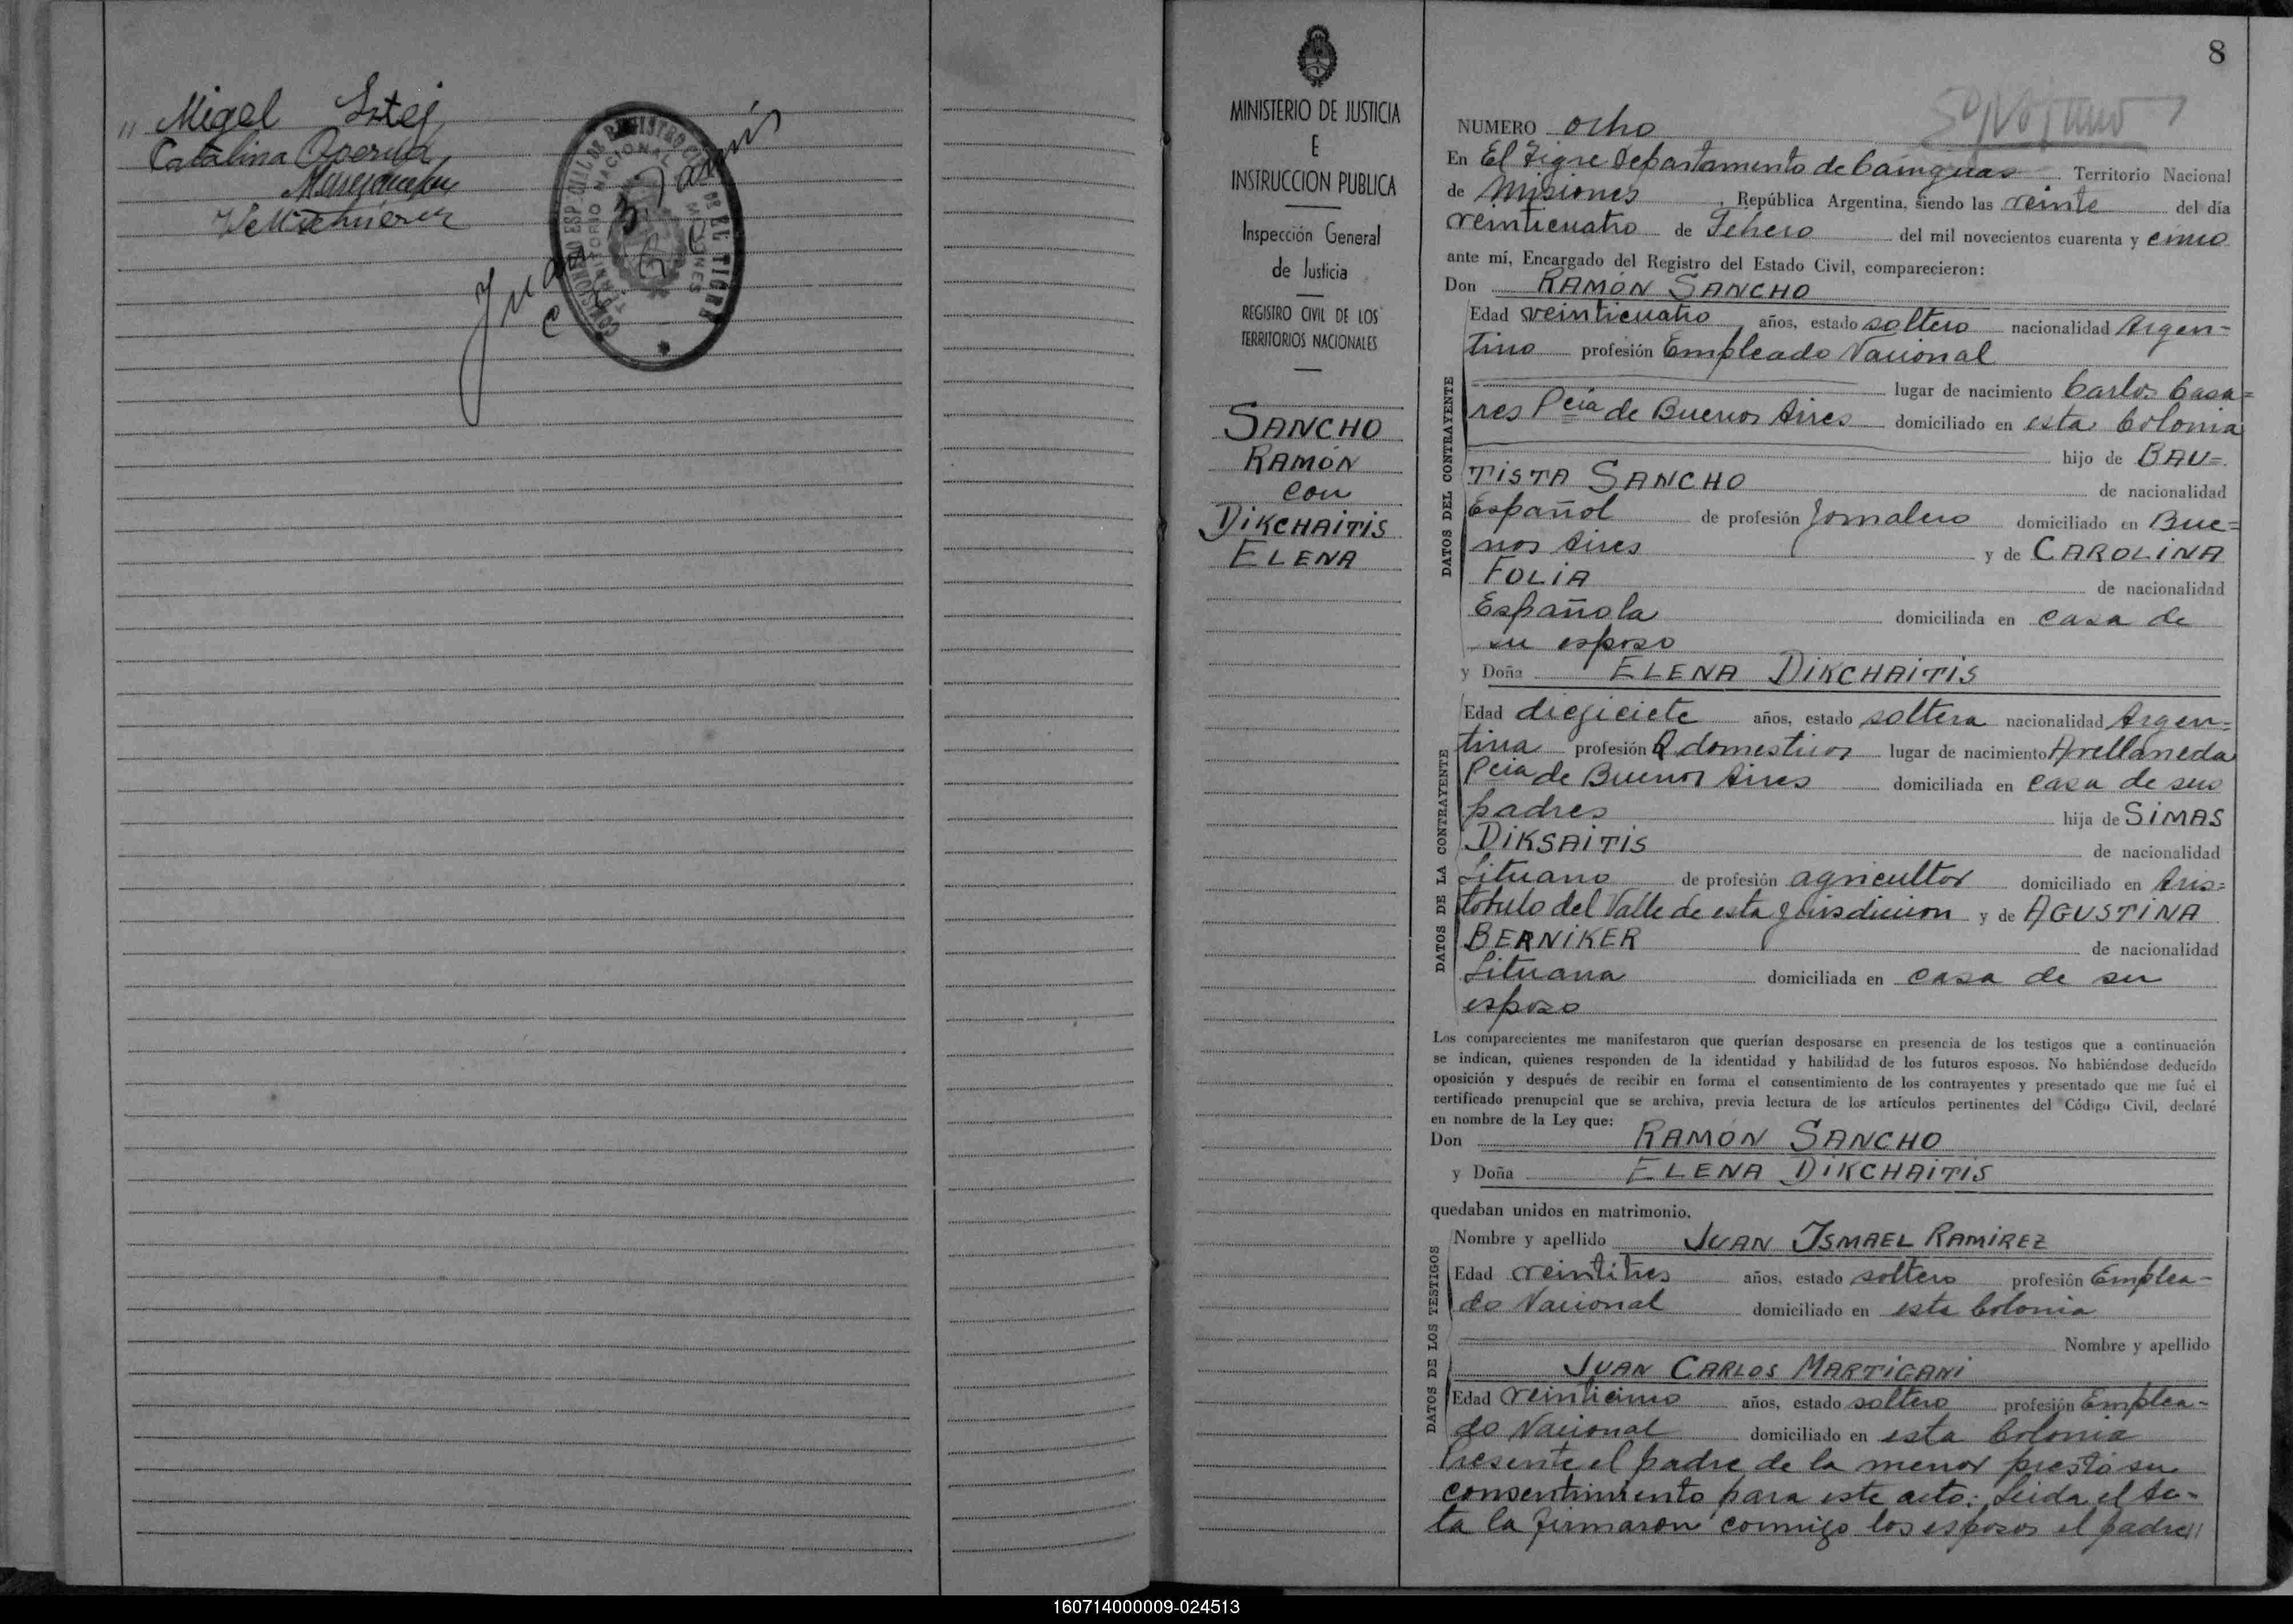 " Migel
Catalina
COMISIONADO ESPECIAL DE REGISTRO CIVIL DE EL TIGRE
TERRITORIO NACIONAL MISIONES
Juan B. Tarris
MINISTERIO DE JUSTICIA
E
INSTRUCCION PUBLICA
Inspección General
de Justicia
REGISTRO CIVIL DE LOS
TERRITORIOS NACIONALES
SANCHO
RAMÓN
con
DIKCHAITIS
ELENA
8
NUMERO ocho
En El Tigre Departamento de Cainguas Territorio Nacional
de Misiones, República Argentina, siendo las veinte del día
veinticuatro de Febrero del mil novecientos cuarenta y cinco
ante mí, Encargado del Registro del Estado Civil, comparecieron:
Don RAMÓN SANCHO
DATOS DEL CONTRAYENTE
Edad veinticuatro años, estado soltero nacionalidad Argen=
tino profesión Empleado Nacional
lugar de nacimiento Carlos Casa=
res Pcia de Buenos Aires domiciliado en esta Colonia
hijo de BAU=
TISTA SANCHO de nacionalidad
Español de profesión Jornalero domiciliado en Bue=
nos Aires y de CAROLINA
FOLIA de nacionalidad
Española domiciliada en casa de
su esposo
y Doña ELENA DIKCHAITIS
DATOS DE LA CONTRAYENTE
Edad diejiciete años, estado soltera nacionalidad Argen=
tina profesión Q domesticos lugar de nacimiento Avellaneda
Pcia de Buenos Aires domiciliada en casa de sus
padres hija de SIMAS
DIKSAITIS de nacionalidad
Lituano de profesión agricultor domiciliado en Aris=
tobulo del Valle de esta jurisdicion y de AGUSTINA
BERNIKER de nacionalidad
Lituana domiciliada en casa de su
esposo
Los comparecientes me manifestaron que querían desposarse en presencia de los testigos que a continuación
se indican, quienes responden de la identidad y habilidad de los futuros esposos. No habiéndose deducido
oposición y después de recibir en forma el consentimiento de los contrayentes y presentado que me fué el
certificado prenupcial que se archiva, previa lectura de los artículos pertinentes del Código Civil, declaré
en nombre de la Ley que:
Don RAMÓN SANCHO
y Doña ELENA DIKCHAITIS
quedaban unidos en matrimonio.
DATOS DE LOS TESTIGOS
Nombre y apellido JUAN ISMAEL RAMIREZ
Edad veintitres años, estado soltero profesión Emplea-
do Nacional domiciliado en esta Colonia
Nombre y apellido
JUAN CARLOS MARTIGANI
Edad veinticinco años, estado soltero profesión Emplea-
do Nacional domiciliado en esta Colonia
Presente el padre de la menor prestó su
consentimiento para este acto: Leida el Ac-
ta la firmaron conmigo los esposos el padre//
160714000009-024513